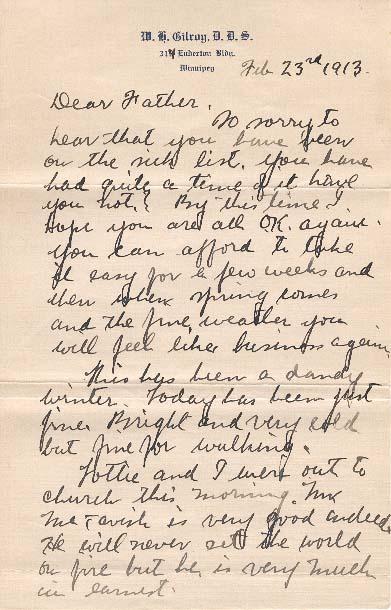 W. H. Gilroy, D. D. S.
314 Enderton Bldg.
Winnipeg
Feb 23rd 1913.
Dear Father,
So sorry to
hear that you have been
on the sick list. you have
had quite a time of it have
you not? By this time I
hope you are all OK. again.
you can afford to take
it easy for a few weeks and
then when spring comes
and the fine weather you
will feel like business again.
This has been a dandy
winter. Today has been just
fine. Bright and very cold
but fine for walking.
Lottie and I were out to
church this morning. Mr
McTavish is very good indeed.
He will never set the world
on fire but he is very much
in earnest.